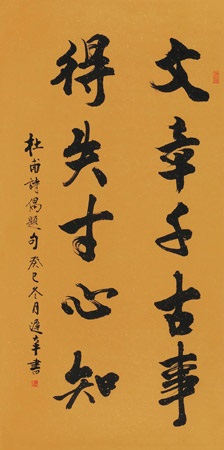 文章千古事
得失寸心知
杜甫詩偶題句癸巳冬月書